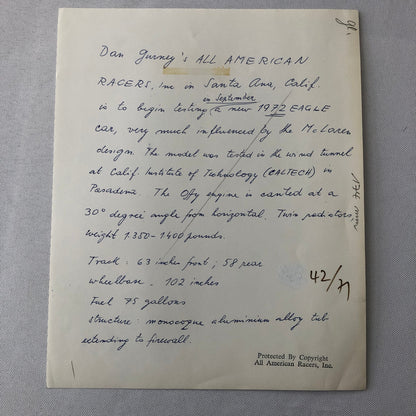 Dan Gurney's ALL AMERICAN
RACERS, Inc in Santa Ana, Calif.
in September
is to begin testing a new 1972 EAGLE
car, very much influenced by the McLaren
design. The model was tested in the wind tunnel
at Calif. Institute of Technology (CALTECH) in
Pasadena. The Offy engine is canted at a
30° degree angle from horizontal. Twin radiators,
weight 1.350-1.400 pounds.
Track: 63 inches front; 58 rear
wheelbase - 102 inches
Fuel 75 gallons
structure: monocoque aluminium alloy tub
extending to firewall.
42/71
Protected By Copyright
All American Racers, Inc.